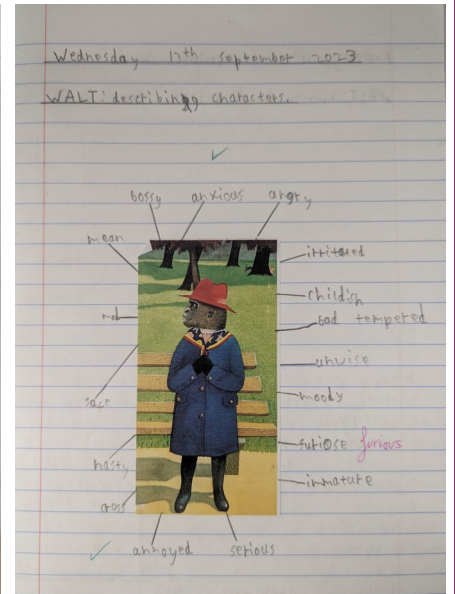 Wednesday 17th september 2023
WALT: describing characters.
bossy anxious angry
mean
irritared
childish
mad
bad tempered
unwise
saze
moody
furiose furious
nasty
immature
cross
annoyed serious